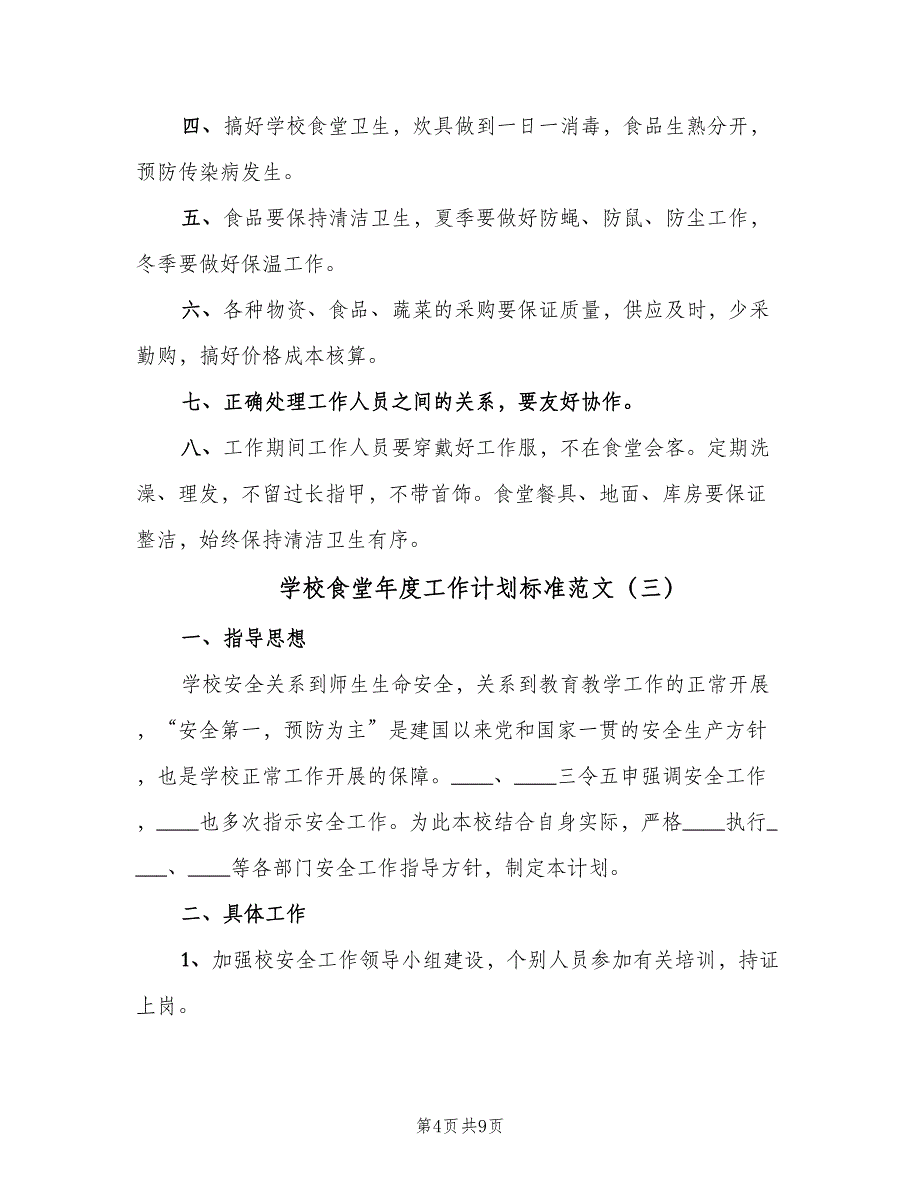 四、搞好学校食堂卫生，炊具做到一日一消毒，食品生熟分开，
预防传染病发生。
五、食品要保持清洁卫生，夏季要做好防蝇、防鼠、防尘工作，
冬季要做好保温工作。
六、各种物资、食品、蔬菜的采购要保证质量，供应及时，少采
勤购，搞好价格成本核算。
七、正确处理工作人员之间的关系，要友好协作。
八、工作期间工作人员要穿戴好工作服，不在食堂会客。定期洗
澡、理发，不留过长指甲，不带首饰。食堂餐具、地面、库房要保证
整洁，始终保持清洁卫生有序。
学校食堂年度工作计划标准范文（三）
一、指导思想
学校安全关系到师生生命安全，关系到教育教学工作的正常开展
，“安全第一，预防为主”是建国以来党和国家一贯的安全生产方针
，也是学校正常工作开展的保障。____、____三令五申强调安全工作
，____也多次指示安全工作。为此本校结合自身实际，严格____执行_
___、____等各部门安全工作指导方针，制定本计划。
二、具体工作
1、加强校安全工作领导小组建设，个别人员参加有关培训，持证
上岗。
第4页共9页